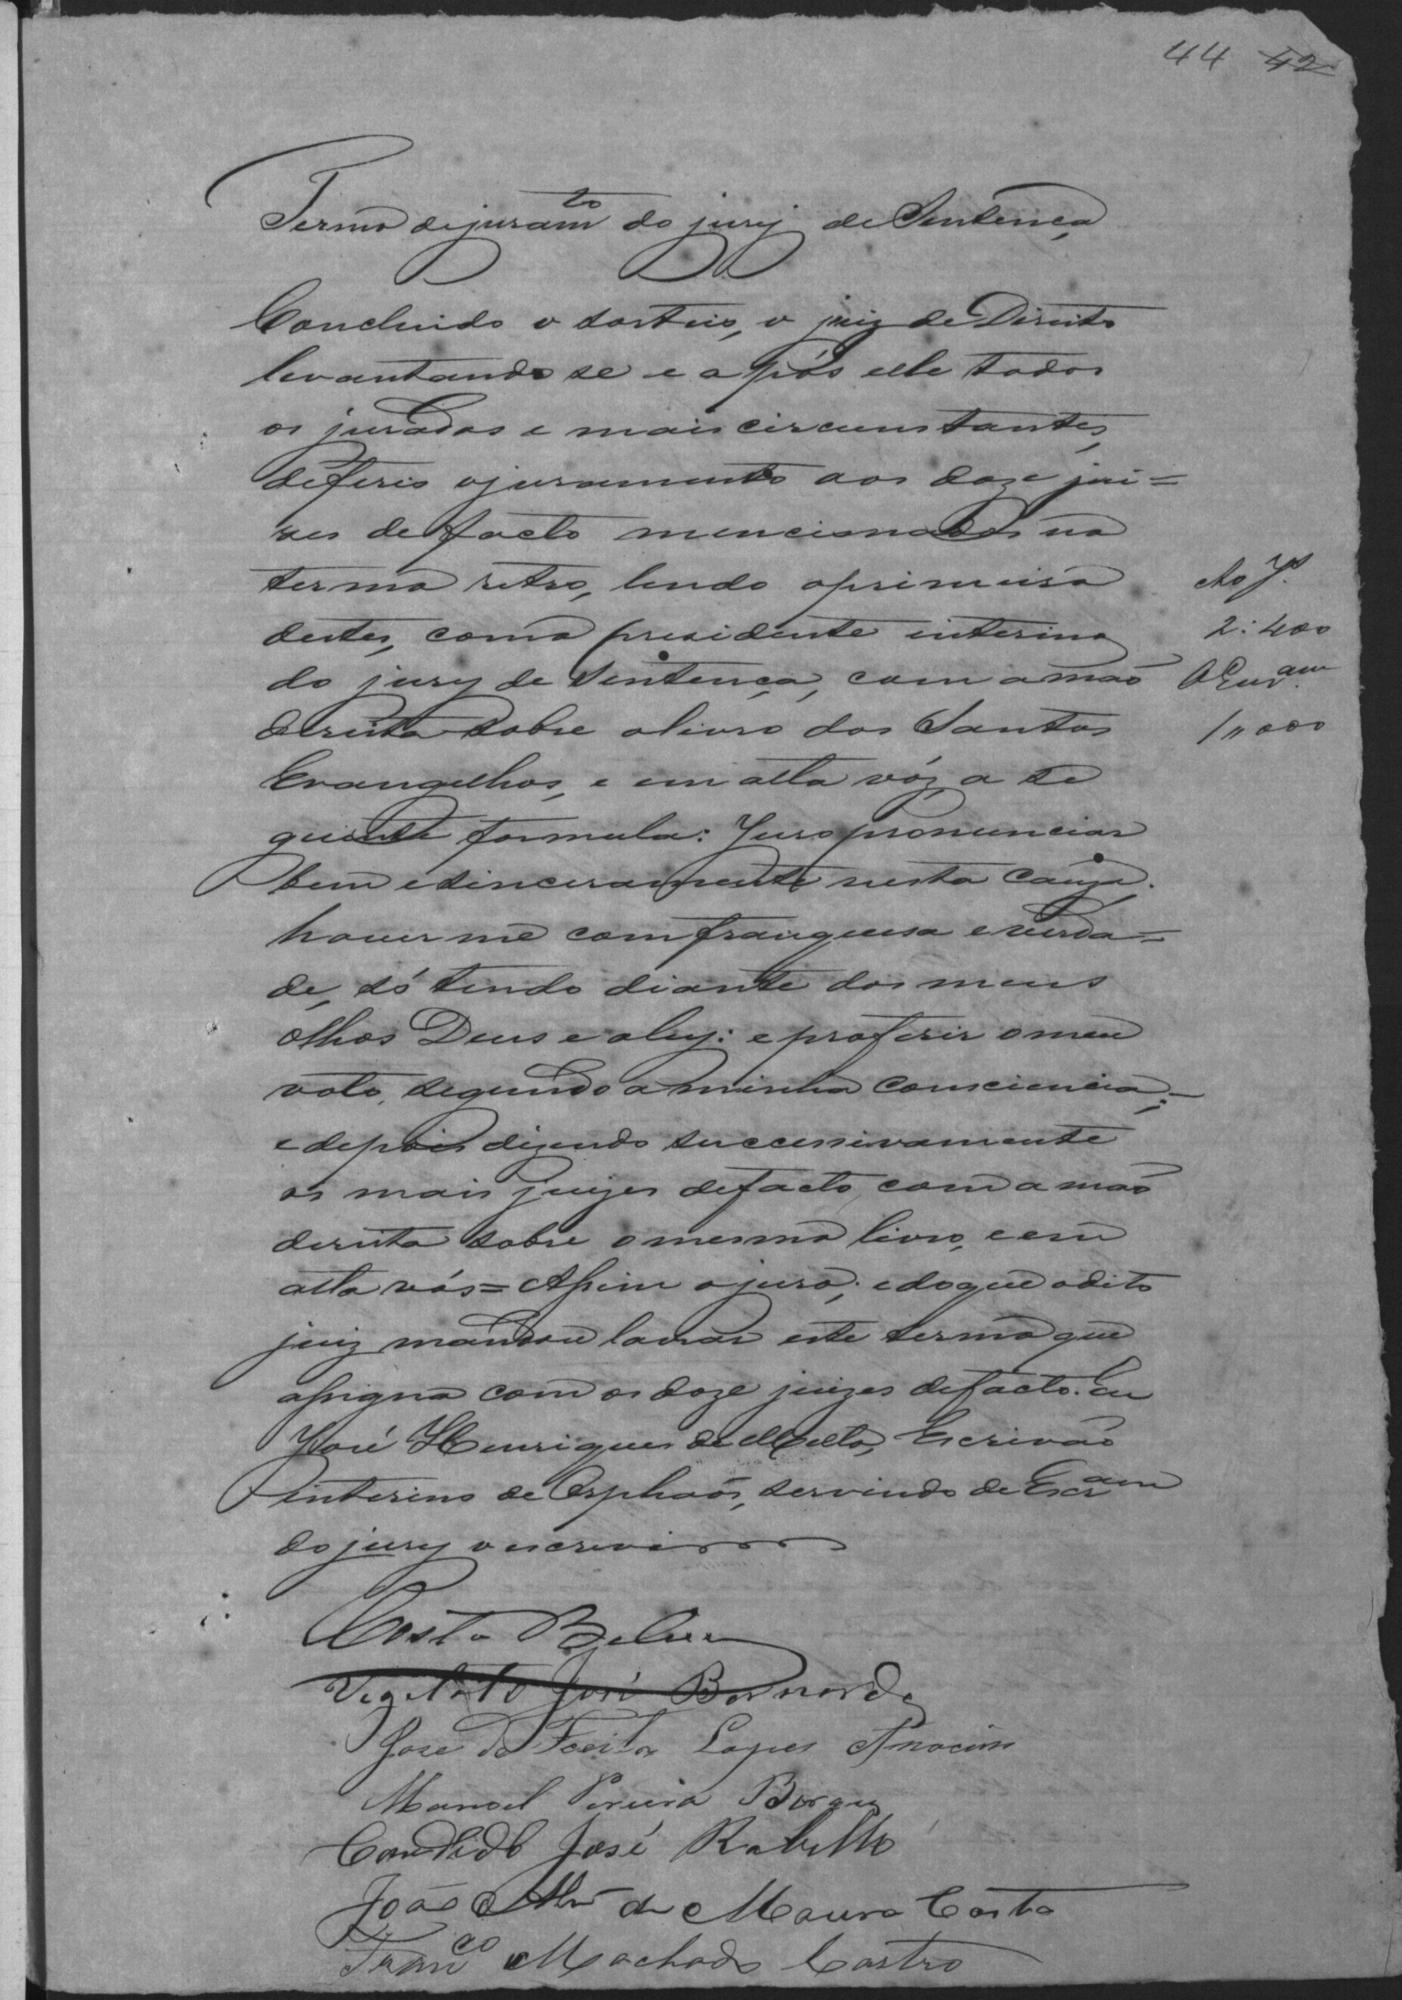 44 42
Termo de juramto do jury de Sentença
Concluido o sorteio, o juiz de Direito
levantando se e após elle todos
os jurados e mais circumstantes,
deferio o juramento aos doze jui=
zes de facto mencionados no
termo retro, lendo o primeiro
destes, como presidente interino
do jury de Sentença, com a mão
direita sobre o livro dos Santos
Evangelhos, e em alta vóz, a se
guinte formula: Juro pronunciar
bem e sinceramente nesta cauza.
haver me com franquesa e verda=
de, só tendo diante dos meus
olhos Deus e a ley: e proferir o meu
voto, segundo a minha consciencia;
e depois dizendo successivamente
os mais juizes de facto, com a mão
direita sobre o mesmo livro, e em
alta vós= Assim o juro; e do que o dito
juiz mandou lavrar este termo que
assigna com os doze juizes de facto. Eu
José Henriques de Mello, Escrivão
interino de Orphaõs, servindo de Escram
do jury o escrevi
Ao J.
2:400
O Escram
1"000
Costa
José Bernardo
José de Lopes
Manoel Pereira
Candido José Rabello
João de Moura Costa
Franco Machado Castro